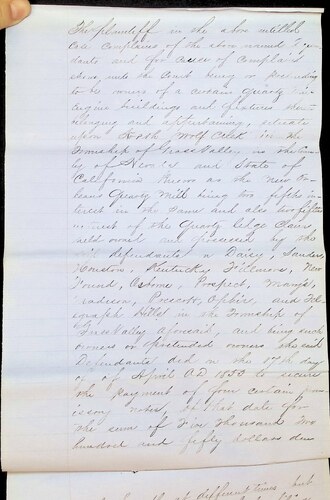 The plaintiff in the above entitled
case complains of the above named
dants and for cause of complaint
shows unto the Court being or pretending
to be owners of a certain Quartz
engine buildings and fixtures
belonging and appertaining, situate
upon Wolf Creek in the
Township of Grass Valley in the
ty of Nevada and State of
California known as the New
leans Quartz Mill being two fifths in
terest in the same and also two fifths
interest of the Quartz Ledge Claims
held and possessed by the
defendants Daisy,
Houston, Kentucky, Fillmore, New
Found, Osborne, Prospect,
Prescott, Ophir, and Tele
graph in the Township of
Grass Valley aforesaid, and being such
owners or pretended owners the said
Defendants did on the 17th day
of April AD 1855 to secure
the payment of four certain
issory notes, date for
the sum of Five Thousand two
hundred and fifty dollars
at different times, but